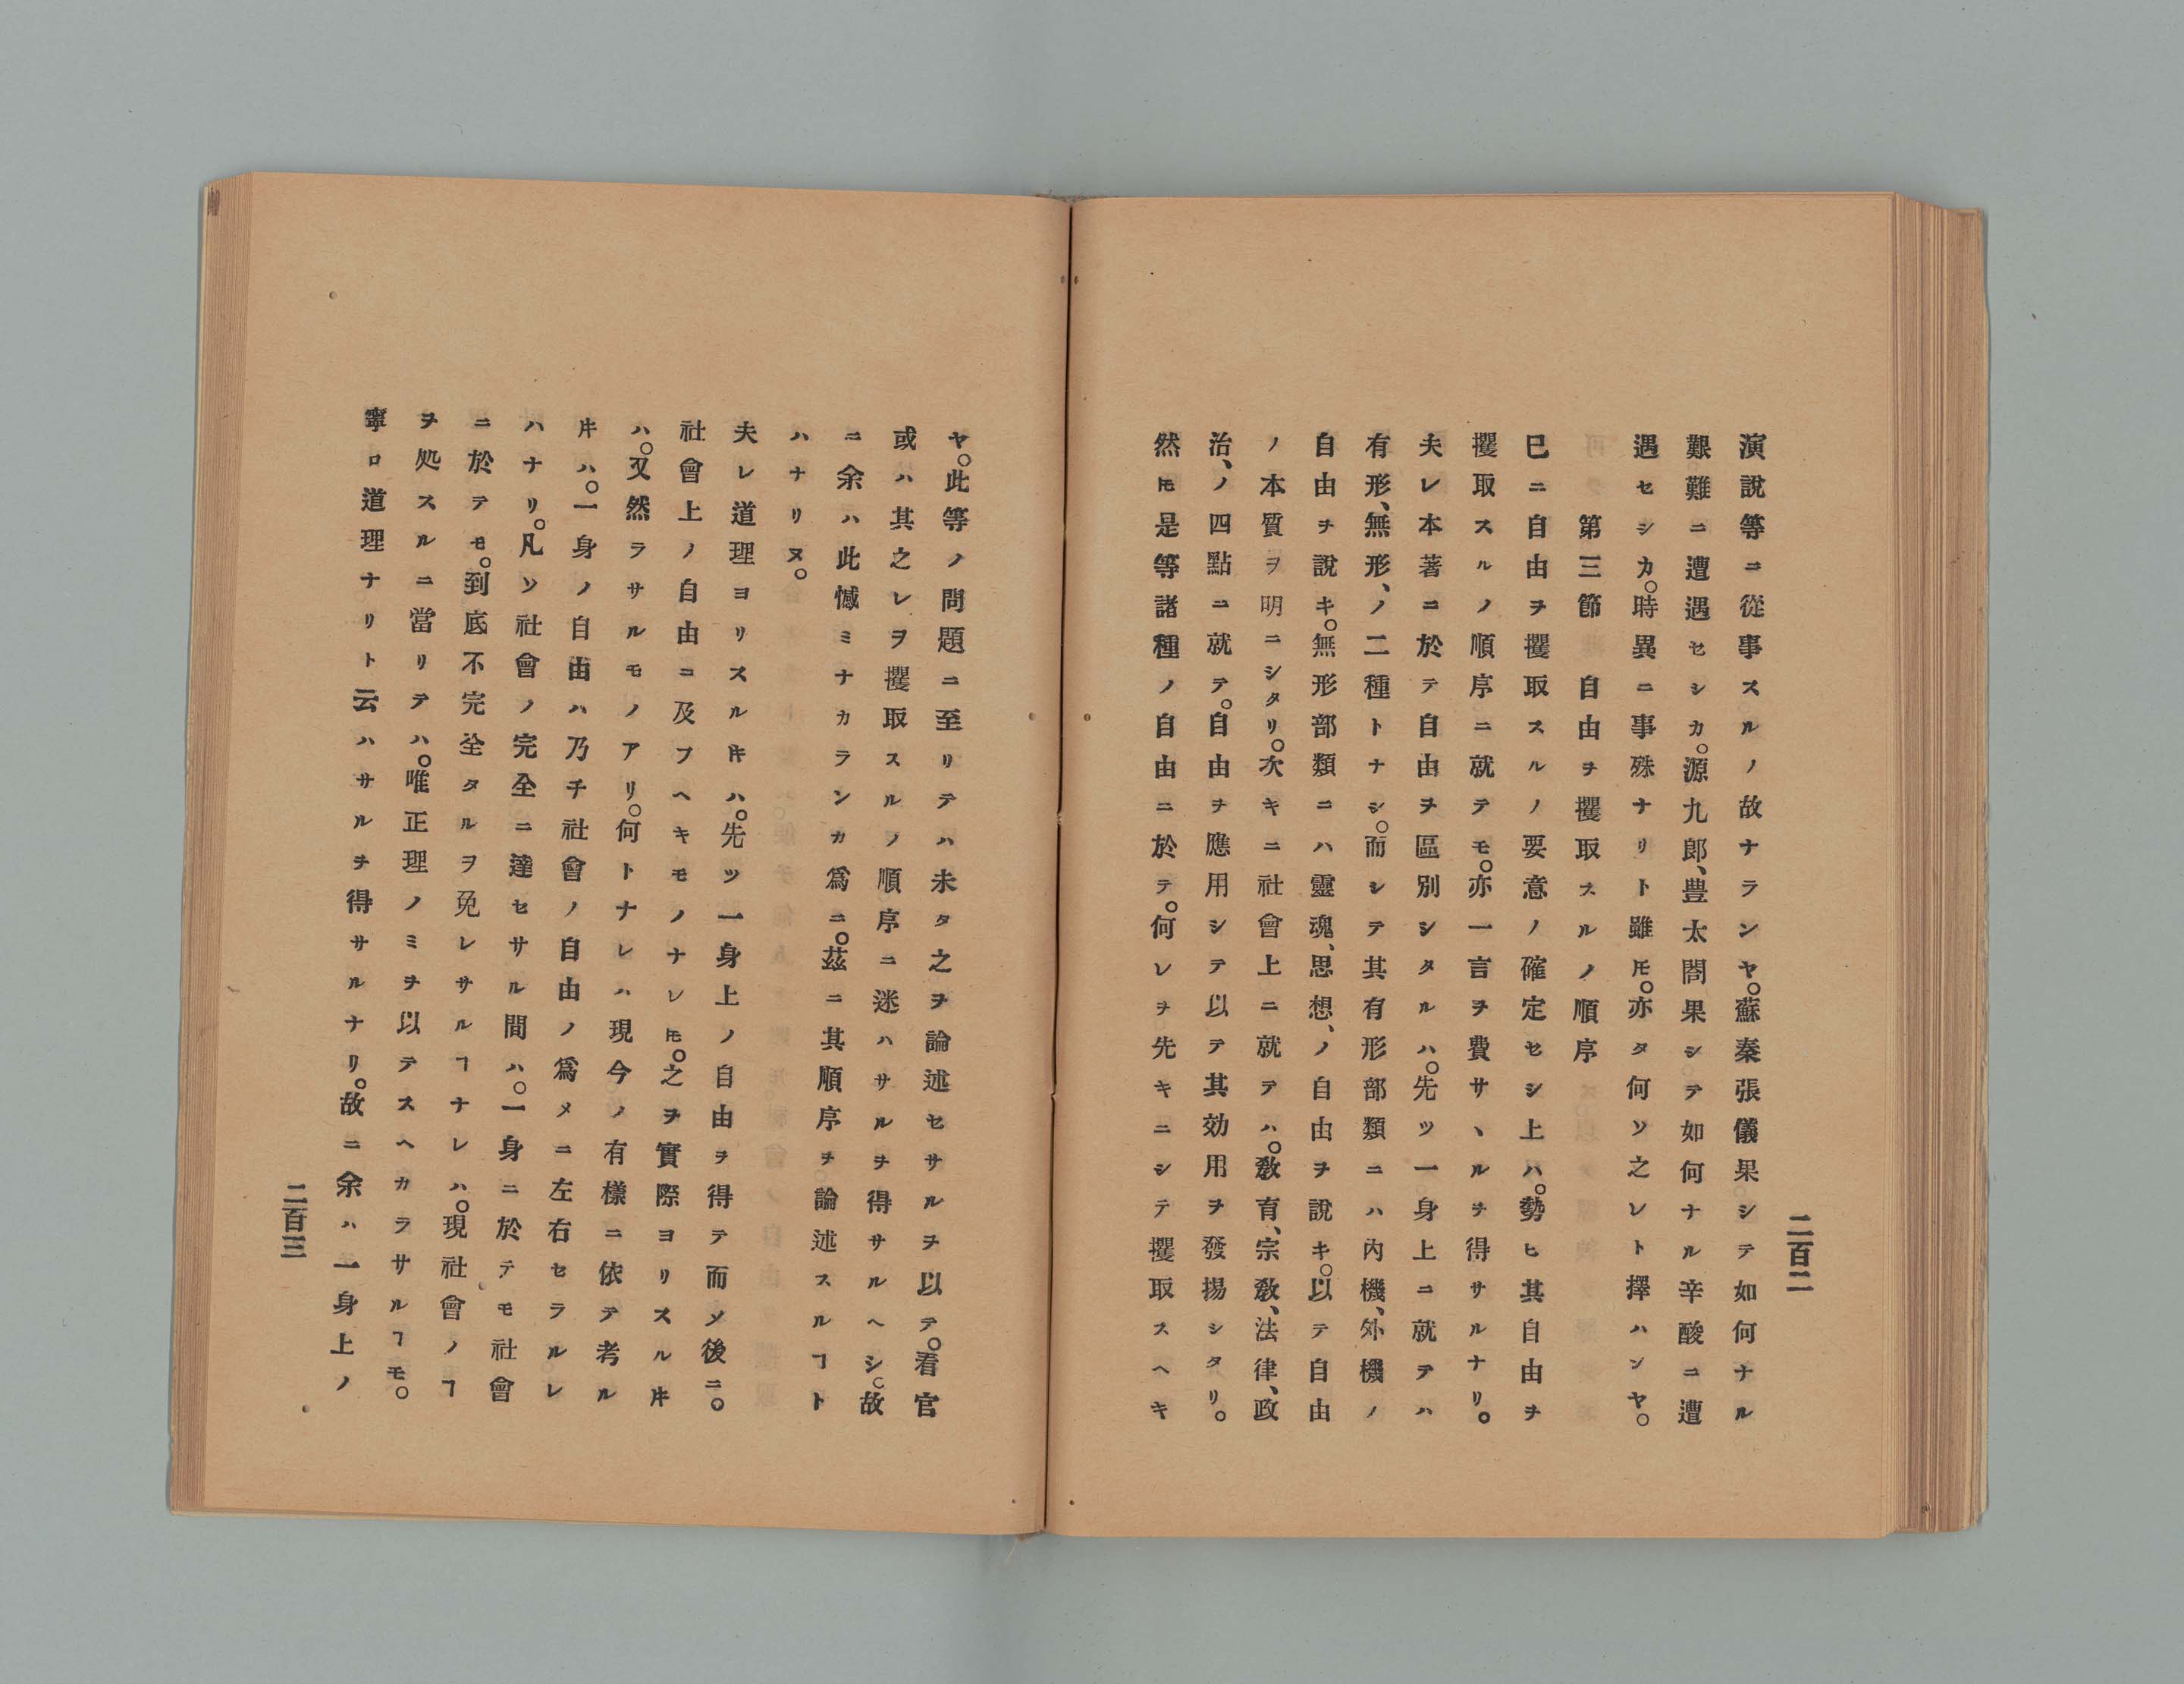 演說等ニ從事スルノ故ナランヤ。蘇秦張儀果シテ如何ナル
艱難ニ遭遇セシカ。源九郎、豊太閤果シテ如何ナル辛酸ニ遭
遇セシカ。時異ニ事殊ナリト雖𪜈。亦タ何ソ之レト擇ハンヤ。
第三節　自由ヲ攫取スルノ順序
已ニ自由ヲ攫取スルノ要意ノ確定セシ上ハ。勢ヒ其自由ヲ
攫取スルノ順序ニ就テモ。亦一言ヲ費サヽルヲ得サルナリ。
夫レ本著ニ於テ自由ヲ區別シタルハ。先ツ一身上ニ就テハ
有形、無形、ノ二種トナシ。而シテ其有形部類ニハ內機、外機ノ
自由ヲ說キ。無形部類ニハ靈魂、思想、ノ自由ヲ說キ。以テ自由
ノ本質ヲ明ニシタリ。次キニ社會上ニ就テハ。敎育、宗敎、法律、政
治、ノ四點ニ就テ。自由ヲ應用シテ以テ其効用ヲ發揚シタリ。
然𪜈是等諸種ノ自由ニ於テ。何レヲ先キニシテ攫取スヘキ
二百二
ヤ。此等ノ問題ニ至リテハ未タ之ヲ論述セサルヲ以テ。看官
或ハ其之レヲ攫取スルノ順序ニ迷ハサルヲ得サルヘシ。故
ニ余ハ此憾ミナカランカ爲ニ。茲ニ其順序ヲ論述スルヿト
ハナリヌ。
夫レ道理ヨリスルキハ。先ツ一身上ノ自由ヲ得テ而〆後ニ。
社會上ノ自由ニ及フヘキモノナレ𪜈。之ヲ實際ヨリスルキ
ハ。又然ラサルモノアリ。何トナレハ現今ノ有樣ニ依テ考ル
キハ。一身ノ自由ハ乃チ社會ノ自由ノ爲メニ左右セラルレ
ハナリ。凡ソ社會ノ完全ニ達セサル間ハ。一身ニ於テモ社會
ニ於テモ。到底不完全タルヲ免レサルヿナレハ。現社會ノヿ
ヲ処スルニ當リテハ。唯正理ノミヲ以テスヘカラサルヿモ。
寧ロ道理ナリト云ハサルヲ得サルナリ。故ニ余ハ一身上ノ
二百三